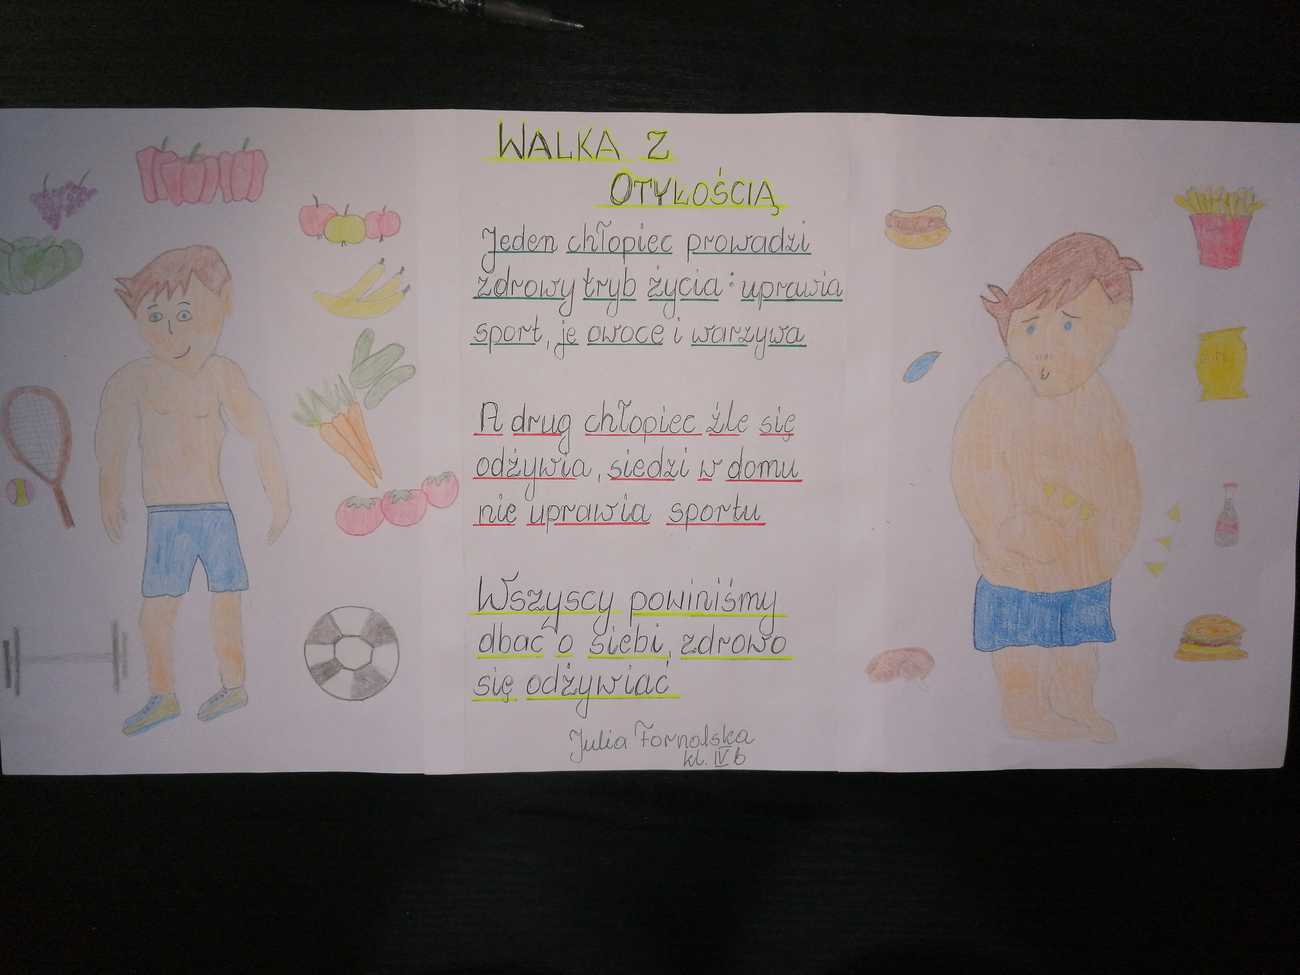 WALKA Z
OTYŁOŚCIĄ
Jeden chłopiec prowadzi
zdrowy tryb życia: uprawia
sport, je owoce i warzywa
A drug chłopiec źle się
odżywia, siedzi w domu
nie uprawia sportu
Wszyscy powiniśmy
dbać o siebi, zdrowo
się odżywiać
Julia Fornalska
kl. IV b